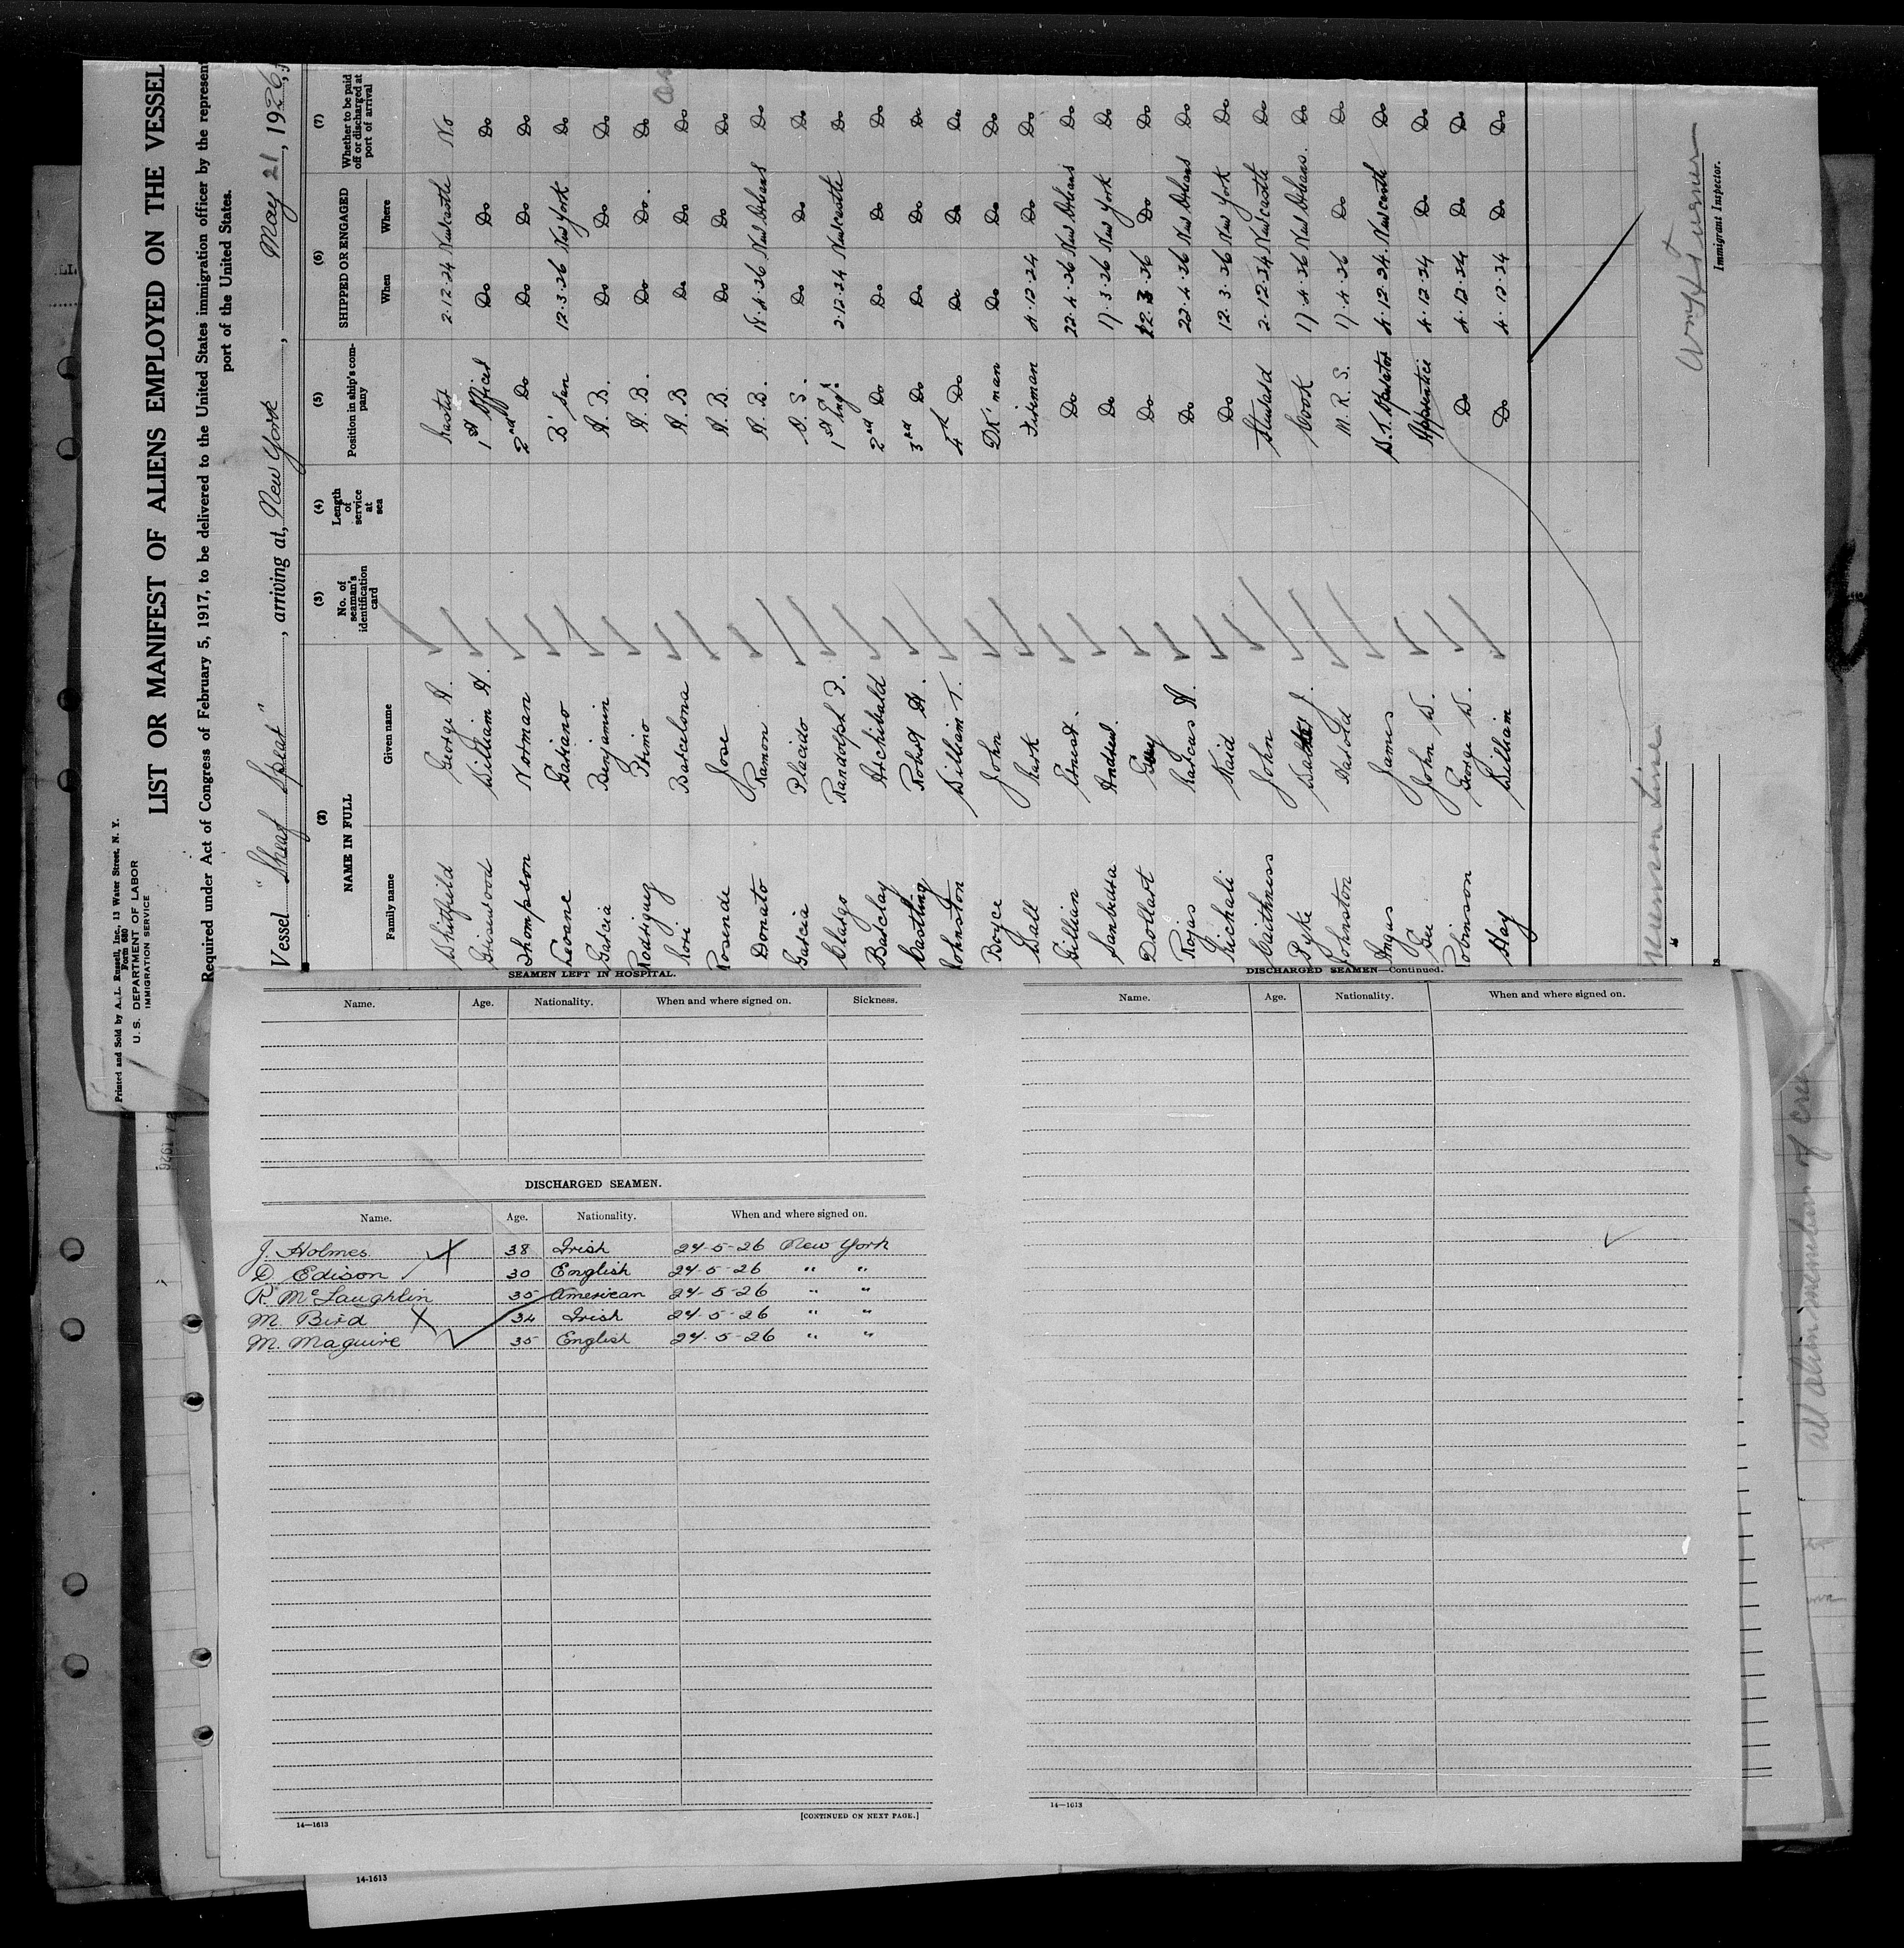 Printed and Sold by A. L. Russell, Inc., 13 Water Street, N. Y.
Form 680
U. S. DEPARTMENT OF LABOR
IMMIGRATION SERVICE
LIST OR MANIFEST OF ALIENS EMPLOYED ON THE VESSEL
Required under Act of Congress of February 5, 1917, to be delivered to the United States immigration officer by the represent
port of the United States.
Vessel "Sheaf Spear", arriving at, New York, May 21, 1926,
(2) (3) (4) (5) (6) (7)
NAME IN FULL No. of seaman's identification card Length of service at sea Position in ship's company SHIPPED OR ENGAGED Whether to be paid off or discharged at port of arrival
Family name Given name When Where
Whitfield George R. Master 2.12.24 Newcastle No
Grisewood William H. 1st Officer Do Do Do
Thompson Norman 2nd Do Do Do Do
Seoane Gariano B'sun 12.3.26 New York Do
Garcia Benjamin A.B. Do Do Do
Rodriguez Primo A.B. Do Do. Do.
Barcelona A.B Do Do Do
Rosende Jose A.B. Do Do Do
Donato Ramon A.B. 18.4.26 New Orleans Do
Garcia Placido O.S. Do Do Do
Clargo Randolph P. 1st Engr. 2.12.24 Newcastle Do
Barclay Archibald 2nd Do Do Do Do
Castling Robert H. 3rd Do Do Do Do
Johnston William T. 4th Do Do Do Do
Boyce John DK'man Do Do Do
Wall Mark Fireman 4.12.24 Do Do
Gillian Ernest. Do 22.4.26 New Orleans Do
Andrew. Do 17.3.26 New York Do
Dollart Guy Do 12.3.26 Do Do
Rojas Marcus A. Do 22.4.26 New Orleans Do
Michali Kaid Do 12.3.26 New York Do
Caithness John Steward 2.12.24 Newcastle Do
Pyke J. Cook 17.4.26 New Orleans. Do
Johnston Harold M.R.S. 17.4.26 Do Do
Angus James W.T. Operator 4.12.24. Newcastle Do
Gee John W. Apprentice 4.12.24 Do Do
Robinson George W. Do 4.12.24 Do Do
Hay William Do 4.12.24 Do Do
Munson Line
Immigrant Inspector.
SEAMEN LEFT IN HOSPITAL.
Name. Age. Nationality. When and where signed on. Sickness.
DISCHARGED SEAMEN.
Name. Age. Nationality. When and where signed on.
J. Holmes. 38 Irish 24-5-26 New York
D. Edison 30 English 24-5-26 " "
R. McLaughlin 35 American 24-5-26 " "
M. Bird 34 Irish 24-5-26 " "
M. Maguire 35 English 24-5-26 " "
[CONTINUED ON NEXT PAGE.]
14—1613
DISCHARGED SEAMEN—Continued.
Name. Age. Nationality. When and where signed on.
14—1613
14-1613
all alien members of crew
1926